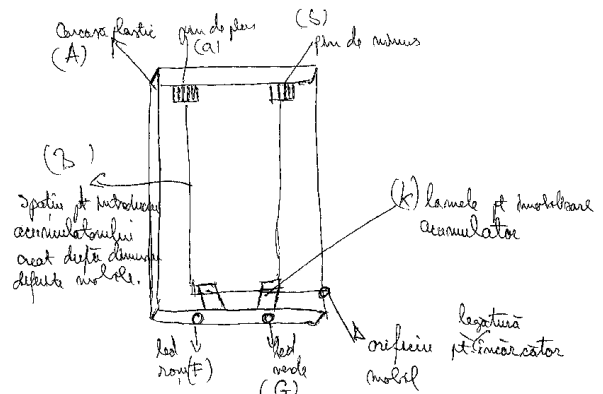 carcasă plastic
(A)
pin de plus
(a)
(b)
pin de minus
(B)
spațiu pt introducerea
acumulatorului
creat după dimensiuni
diferite mobile.
(K) lamele pt imobilizare
acumulator
led
roșu (F)
led
verde
(G)
orificiu
mobil
legătură
pt încărcător